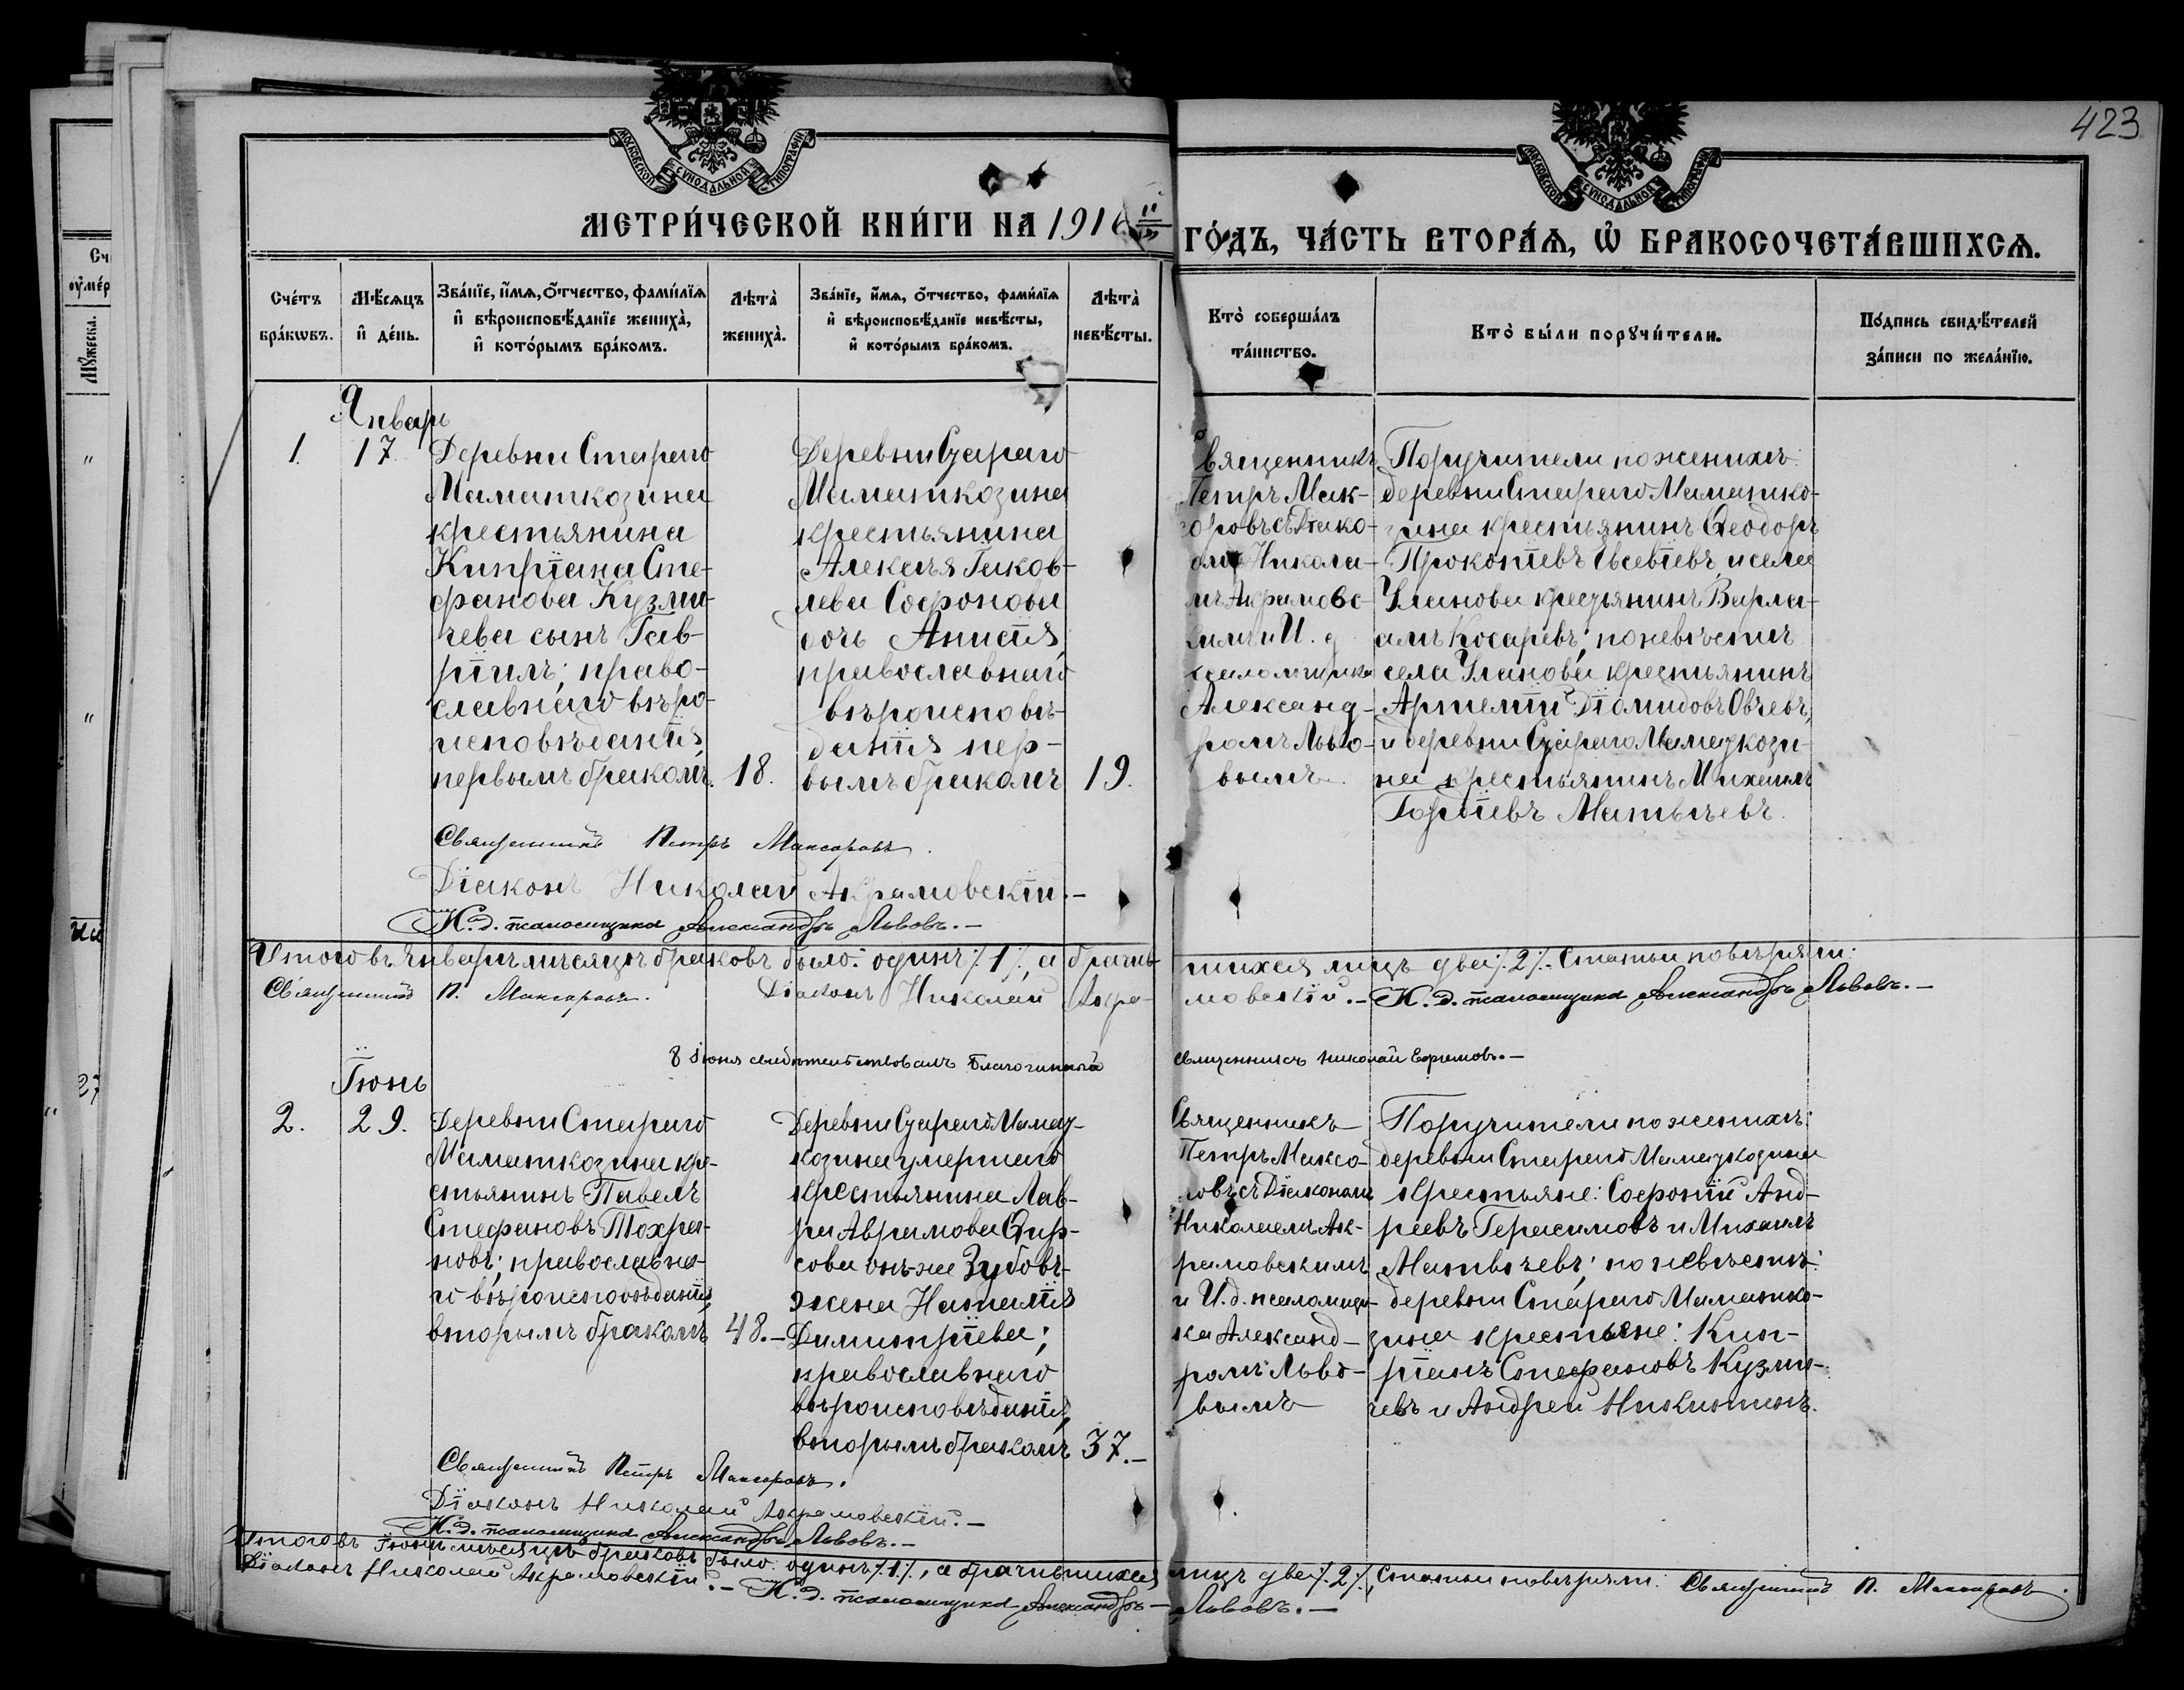 423
МОСКОВСКОЙ СѴНОДАЛЬНОЙ ТИПОГРАФІИ
МОСКОВСКОЙ СѴНОДАЛЬНОЙ ТИПОГРАФІИ
МЕТРИ́ЧЕСКОЙ КНИ́ГИ НА 1916 ГО́ДЪ, ЧА́СТЬ ВТОРА́Ѧ, Ѡ҆ БРАКОСОЧЕТА́ВШИХСѦ.
Сче́тъ
бра́кѡвъ.
Мѣ́сяцъ
и҆ де́нь.
Зва́нїе, и҆́мѧ, ѻ҆́тчество, фами́лїѧ
и҆ вѣроисповѣ́данїе жениха̀,
и҆ кото́рымъ бра́комъ.
Лѣта̀
жениха̀.
Зва́нїе, и҆́мѧ, ѻ҆́тчество, фами́лїѧ
и҆ вѣроисповѣ́данїе невѣ́сты,
и҆ кото́рымъ бра́комъ.
Лѣта̀
невѣ́сты.
Кто̀ соверша́лъ
та́инство.
Кто̀ бы́ли порꙋчи́тели.
По́дпись свидѣ́телей
за́писи по жела́нїю.
Январь
1. 17
Деревни Стараго
Маматкозина
крестьянина
Кипріана Сте-
фанова Кузми-
чева сынъ Гав-
ріилъ; право-
славнаго вѣро-
исповѣданія,
первымъ бракомъ.
18.
Деревни Стараго
Маматкозина
крестьянина
Алексѣя Іаков-
лева Софронова
дочь Анисія,
православнаго
вѣроисповѣ-
данія пер-
вымъ бракомъ
19.
Священникъ
Петръ Мак-
соровъ съ Діако-
омъ Никола-
мъ Акрамовс-
имъ и И. д.
псаломщика
Александ-
ромъ Льво-
вымъ.
Поручители по женихѣ:
деревни Стараго Маматко-
зина крестьянинъ Ѳеодоръ
Прокопіевъ Евсевіевъ, и села
Уланова крестьянинъ Варла-
амъ Косаревъ; по невѣстѣ
села Уланова крестьянинъ
Артемій Діомидовъ Овчевъ,
и деревни Стараго Маматкози-
на крестьянинъ Михаилъ
Гордіевъ Матвѣевъ.
Священникъ Петръ Максоровъ.
Діаконъ Николай Акрамовскій.-
И. д. псаломщика Александръ Львовъ.-
Итого въ Январѣ мѣсяцѣ браковъ было: одинъ ٪1٪, а брачив-
шихся лицъ два ٪2٪. Статьи повѣряли:
Священникъ П. Максоровъ. Діаконъ Николай Акра-
мовскій.- И. д. псаломщика Александръ Львовъ.-
8 Іюня свидѣтельствовалъ Благочинный Священникъ Николай Ефремовъ.-
Іюнь
2. 29.
Деревни Стараго
Маматкозина кре-
стьянинъ Павелъ
Стефановъ Тохра-
новъ; православна-
го вѣроисповѣданія
вторымъ бракомъ
48.-
Деревни Стараго Мамат-
козина умершаго
крестьянина Лав-
ра Аврамова Ѳир-
сова онъ же Зубовъ-
жена Наталія
Димитріева;
православнаго
вѣроисповѣданія,
вторымъ бракомъ
37.-
Священникъ
Петръ Максо-
ровъ съ Діакономъ
Николаемъ Ак-
рамовскимъ
и И. д. псаломщи-
ка Александ-
ромъ Льво-
вымъ
Поручители по женихѣ:
деревни Стараго Маматкозина
крестьяне: Софроній Анд-
реевъ Герасимовъ и Михаилъ
Матвѣевъ; по невѣстѣ:
деревни Стараго Маматко-
зина крестьяне: Кип-
ріанъ Стефановъ Кузми-
чевъ и Андрей Никитинъ.
Священникъ Петръ Максоровъ.
Діаконъ Николай Акрамовскій.-
И. д. псаломщика Александръ Львовъ.-
Итого въ Іюнѣ мѣсяцѣ браковъ было: одинъ ٪1٪, а брачившихся лицъ два ٪2٪, Статьи повѣряли: Священникъ П. Максоровъ.
Діаконъ Николай Акрамовскій.- И. д. псаломщика Александръ Львовъ.-